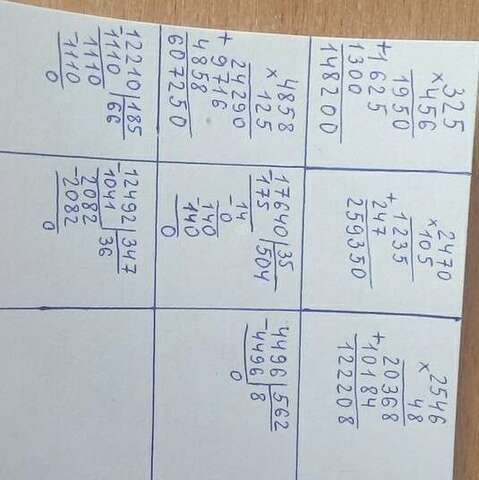 325
× 456
1950
+ 1625
1300
148200
2470
× 105
1235
+ 247
259350
2546
× 48
20368
+ 10184
122208
4858
× 125
24290
+ 9716
4858
607250
- 17640 | 35
175 | 504
14
- 0
140
- 140
0
- 4496 | 562
4496 | 8
0
- 12210 | 185
1110 | 66
1110
- 1110
0
- 12492 | 347
1041 | 36
2082
- 2082
0